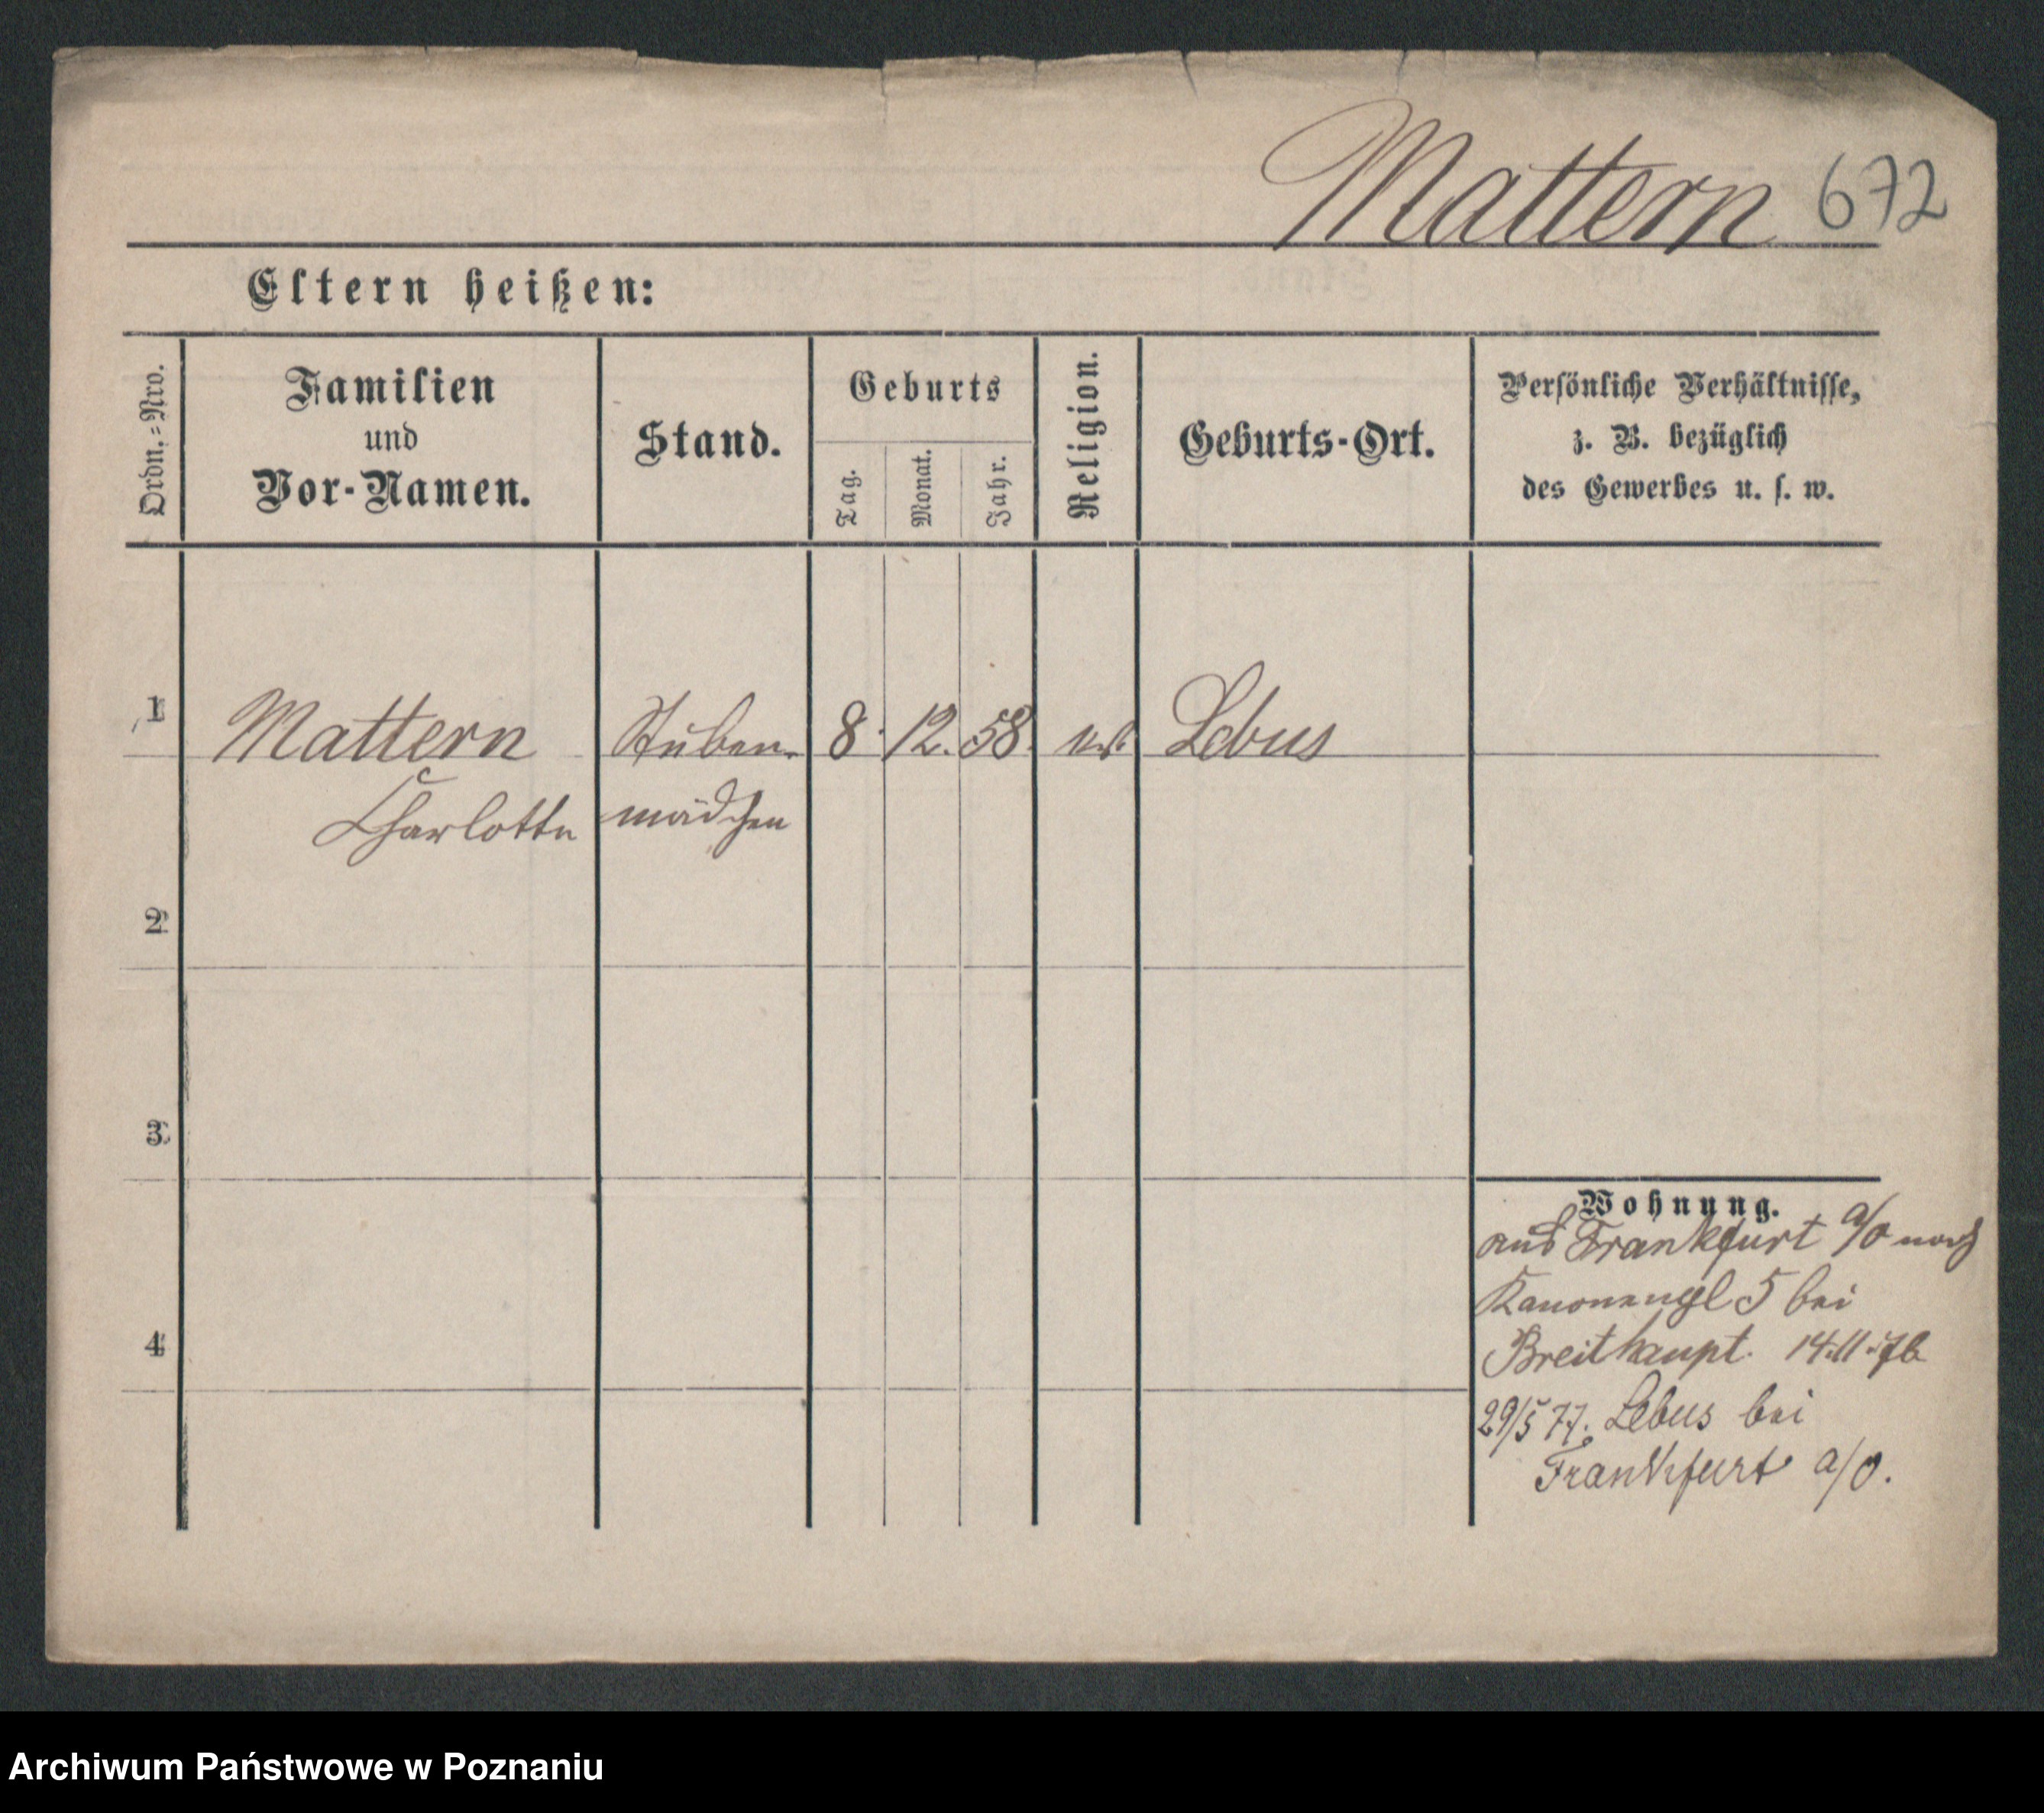 Mattern 672
Eltern heißen:
Ordn.-Nro.
Familien
und
Vor-Namen.
Stand.
Geburts
Tag.
Monat.
Jahr.
Religion.
Geburts-Ort.
Persönliche Verhältnisse,
z. B. bezüglich
des Gewerbes u. s. w.
1 Mattern Stuben- 8. 12. 58. Lebus
Charlotte mädchen
2
3
4
Wohnung.
aus Frankfurt a/O nach
Kanonengl 5 bei
Breithaupt. 14.11.76
29/5 77. Lebus bei
Frankfurt a/O.
Archiwum Państwowe w Poznaniu